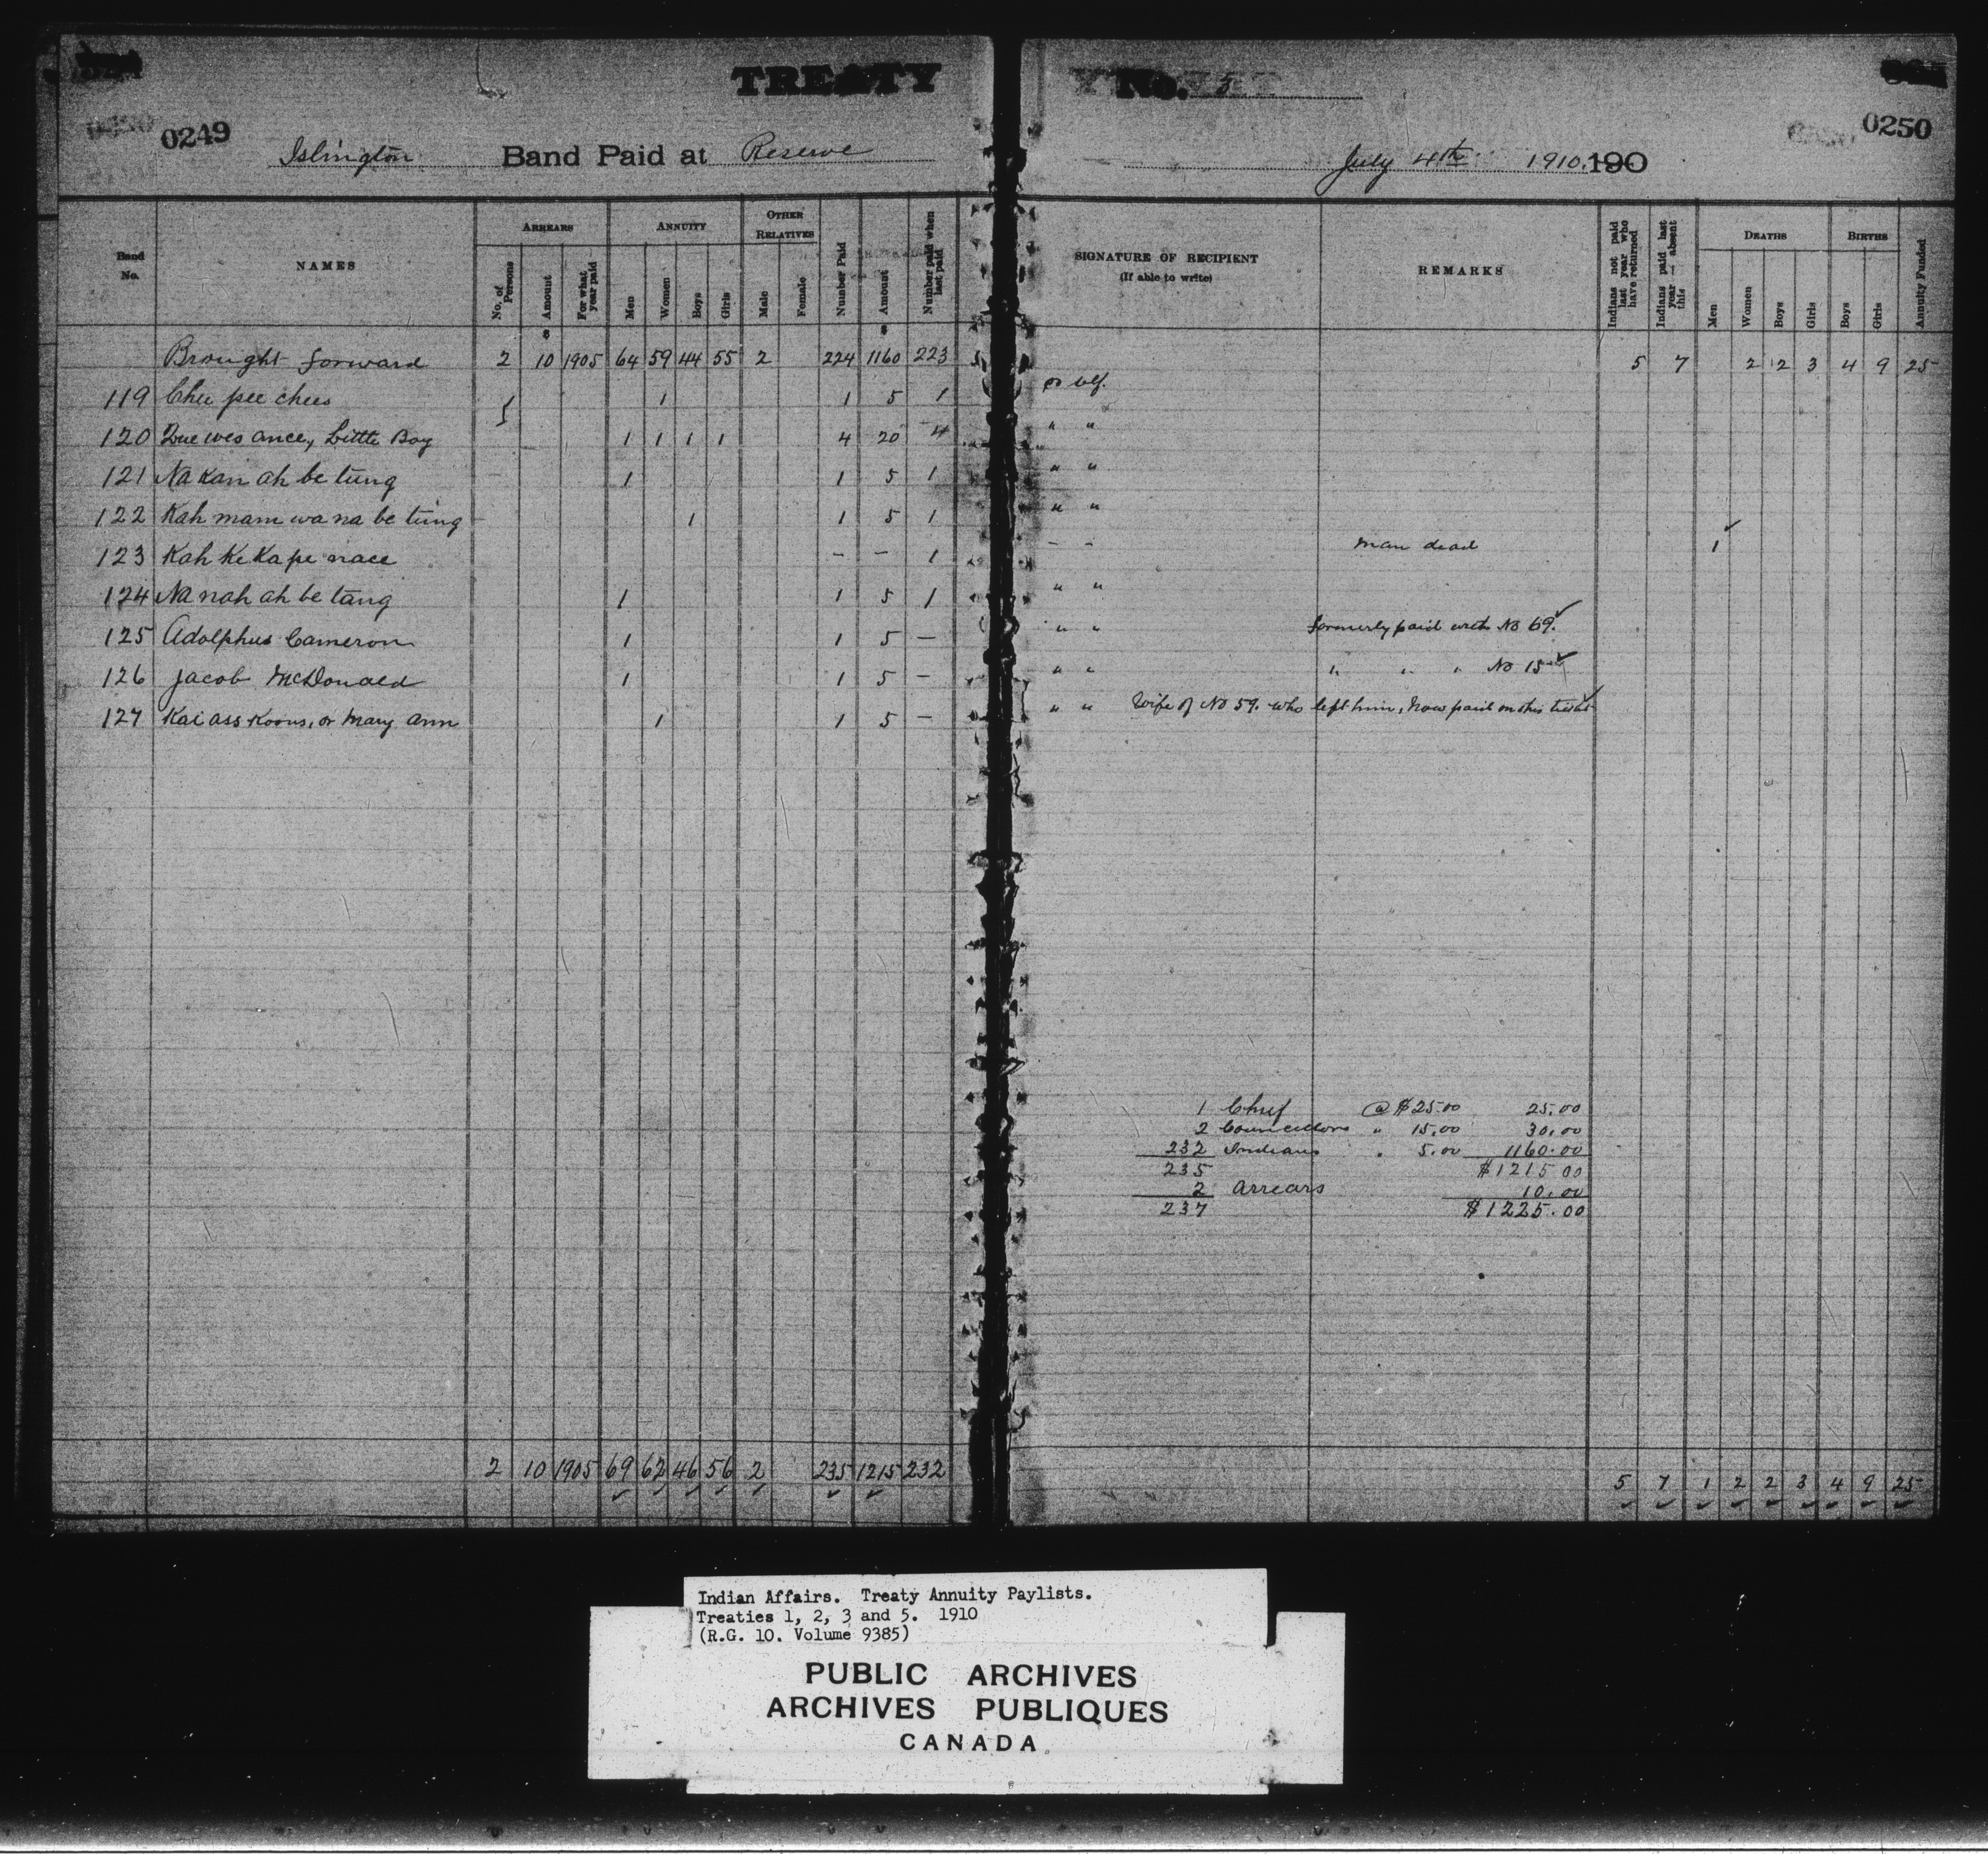 TREATY No. 5
0249
0250
Islington Band Paid at Reserve July 4th 1910. 190
Band No. NAMES ARREARS ANNUITY OTHER RELATIVES SIGNATURE OF RECIPIENT (If able to write) REMARKS DEATHS BIRTHS
No. of Persons Amount For what year paid Men Women Boys Girls Male Female Number Paid Amount Number paid when last paid Indians not paid last year who have returned Indians paid last year — absent this Men Women Boys Girls Boys Girls Annuity Funded
Brought forward 2 10 1905 64 59 44 55 2 224 1160 223 5 7 2 2 3 4 9 25
119 Chee pee chees 1 1 5 1
120 Que wes ance, Little Boy 1 1 1 1 4 20 4 " "
121 Na kan ah be tung 1 1 5 1 " "
122 Kah mam wa na be tung 1 1 5 1 " "
123 Kah Ke Ka pe nace – – 1 – – Man dead 1
124 Na nah ah be tang 1 1 5 1 " "
125 Adolphus Cameron 1 1 5 – " " formerly paid with No 69.
126 Jacob McDonald 1 1 5 – " " " " " No 15
127 Kai ass Koous, or Mary Ann 1 1 5 – " " Wife of No 59. who left him, now paid on this ticket
1 Chief @ $25.00 25.00
2 Councillors " 15.00 30.00
232 Indians " 5.00 1160.00
235 $1215 00
2 Arrears 10.00
237 $1225.00
2 10 1905 69 62 46 56 2 235 1215 232 5 7 1 2 2 3 4 9 25
Indian Affairs. Treaty Annuity Paylists.
Treaties 1, 2, 3 and 5. 1910
(R.G. 10. Volume 9385)
PUBLIC ARCHIVES
ARCHIVES PUBLIQUES
CANADA